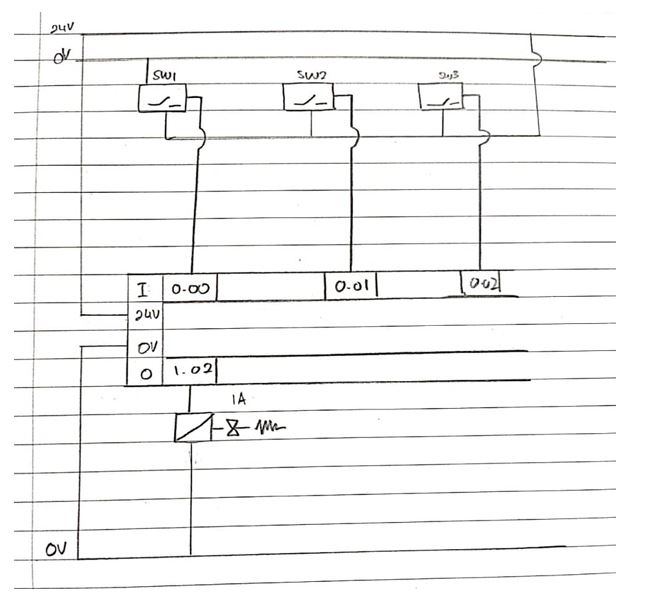 24V
0V
SW1 SW2 SW3
I 0.00 0.01 0.02
24V
0V
O 1.02
1A
0V